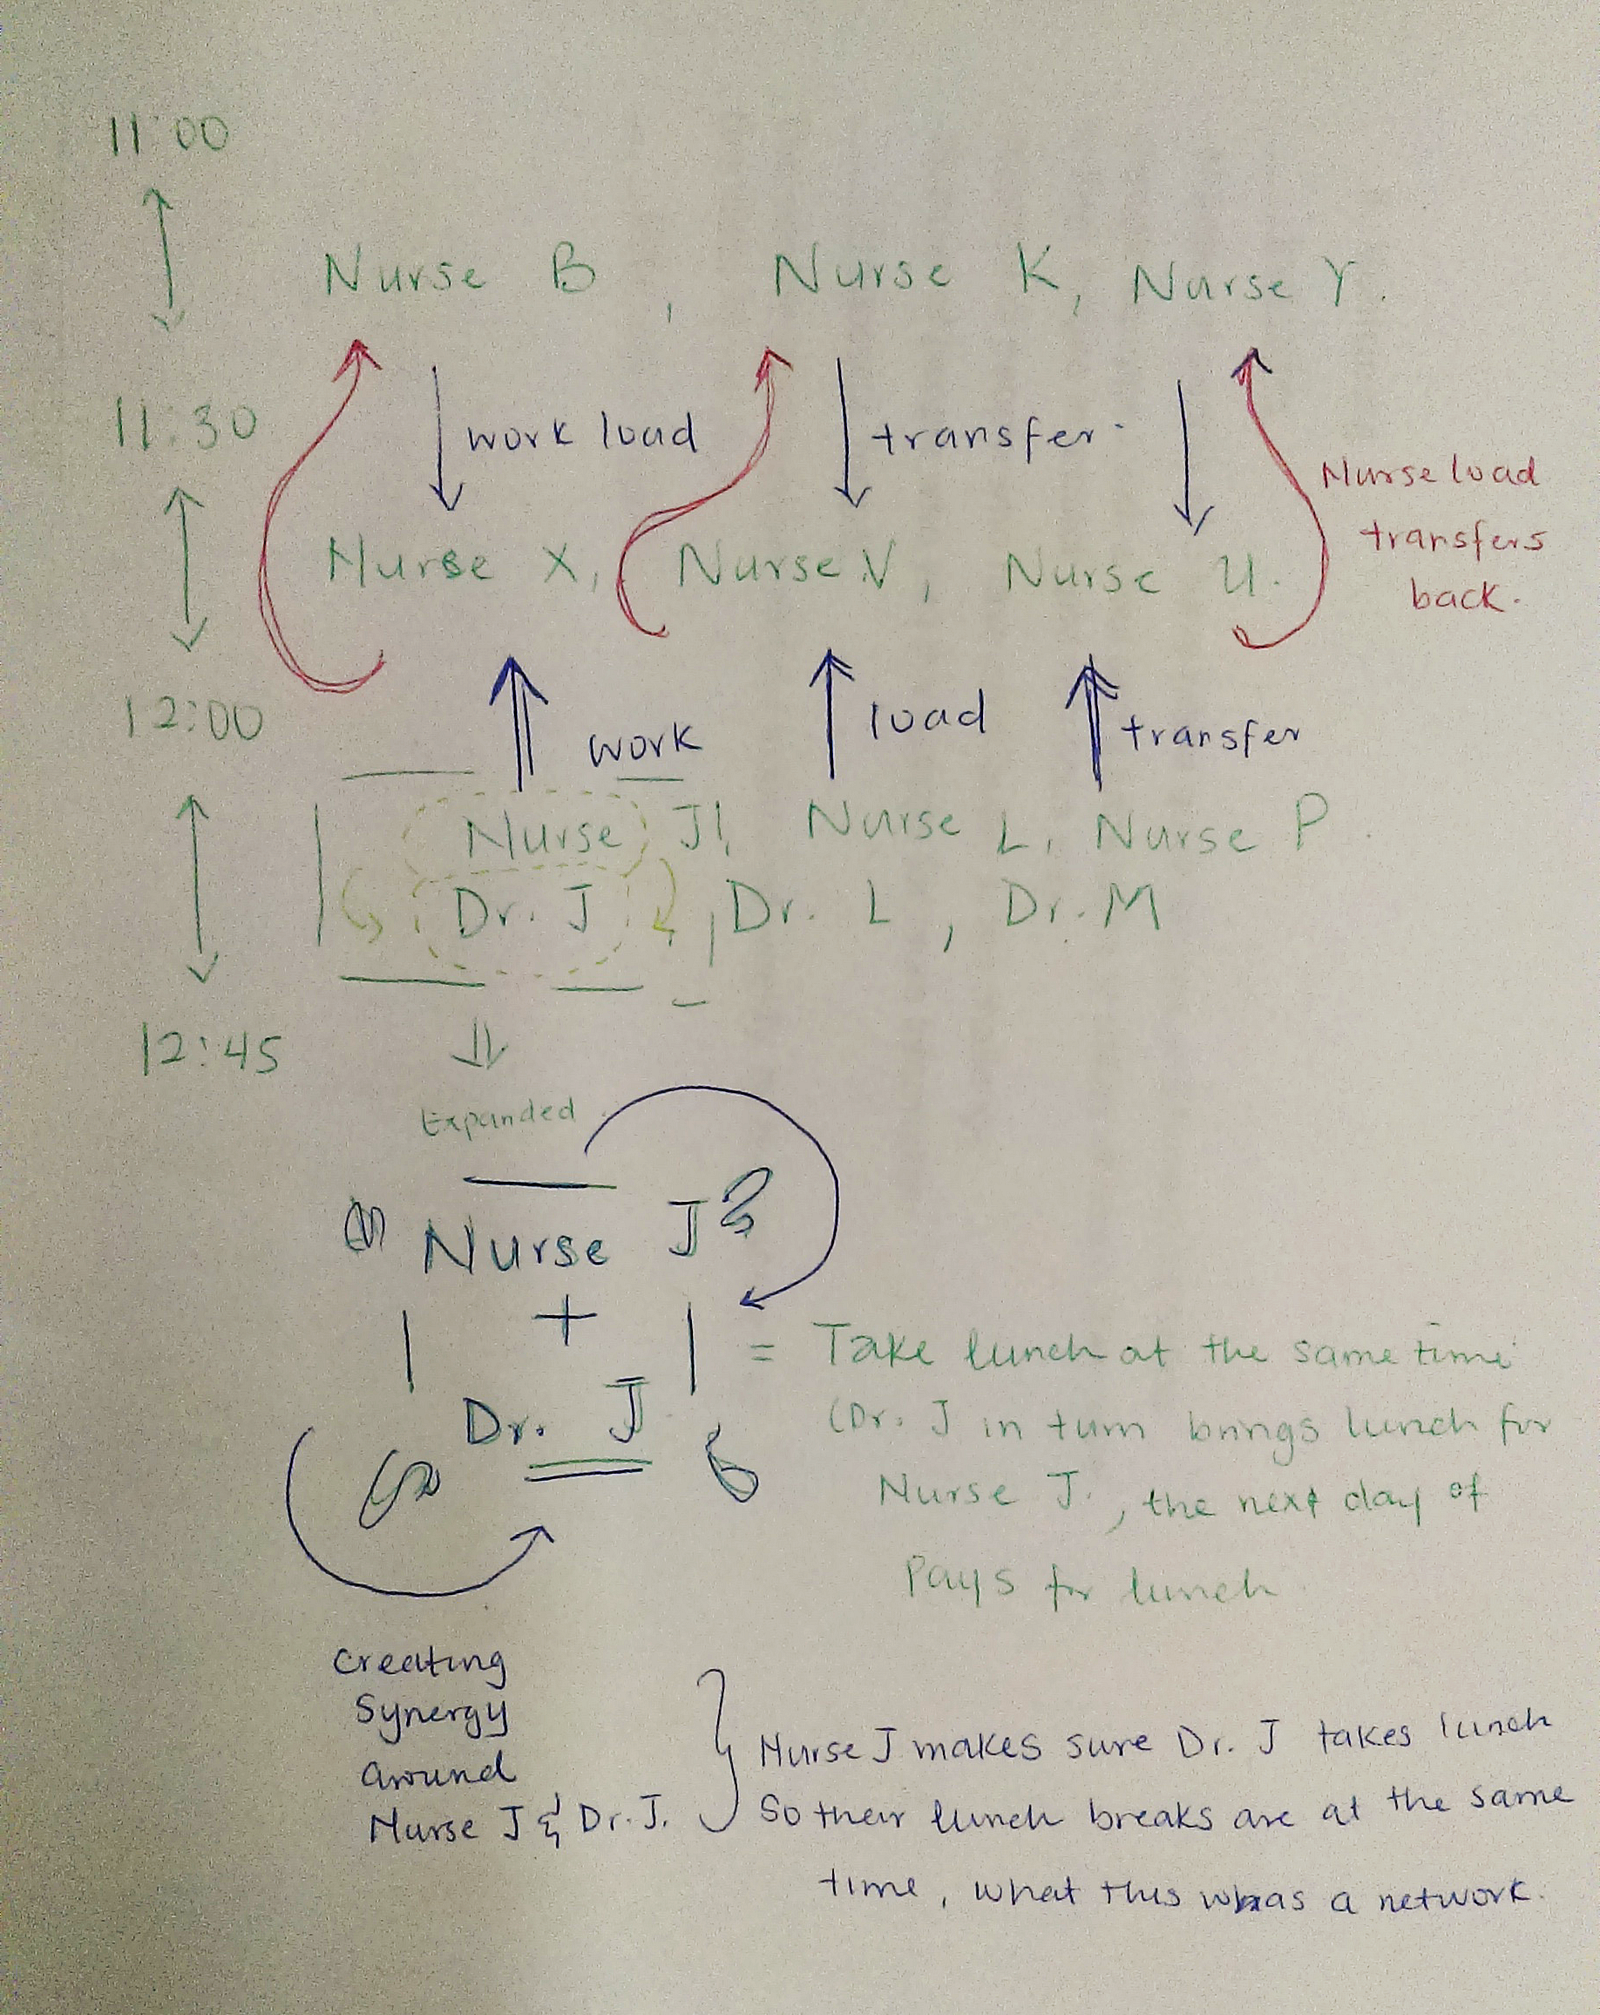 11:00
Nurse B, Nurse K, Nurse Y.
11:30
work load transfer
Nurse load
transfers
back.
Nurse X, Nurse V, Nurse U.
12:00
work load transfer
Nurse J, Nurse L, Nurse P.
Dr. J, Dr. L, Dr. M
12:45
Expanded
Nurse J
+
Dr. J
= Take lunch at the same time
(Dr. J in turn brings lunch for
Nurse J, the next day of
Pays for lunch
Creating
Synergy
around
Nurse J & Dr. J.
Nurse J makes sure Dr. J takes lunch
So their lunch breaks are at the same
time, what this was a network.